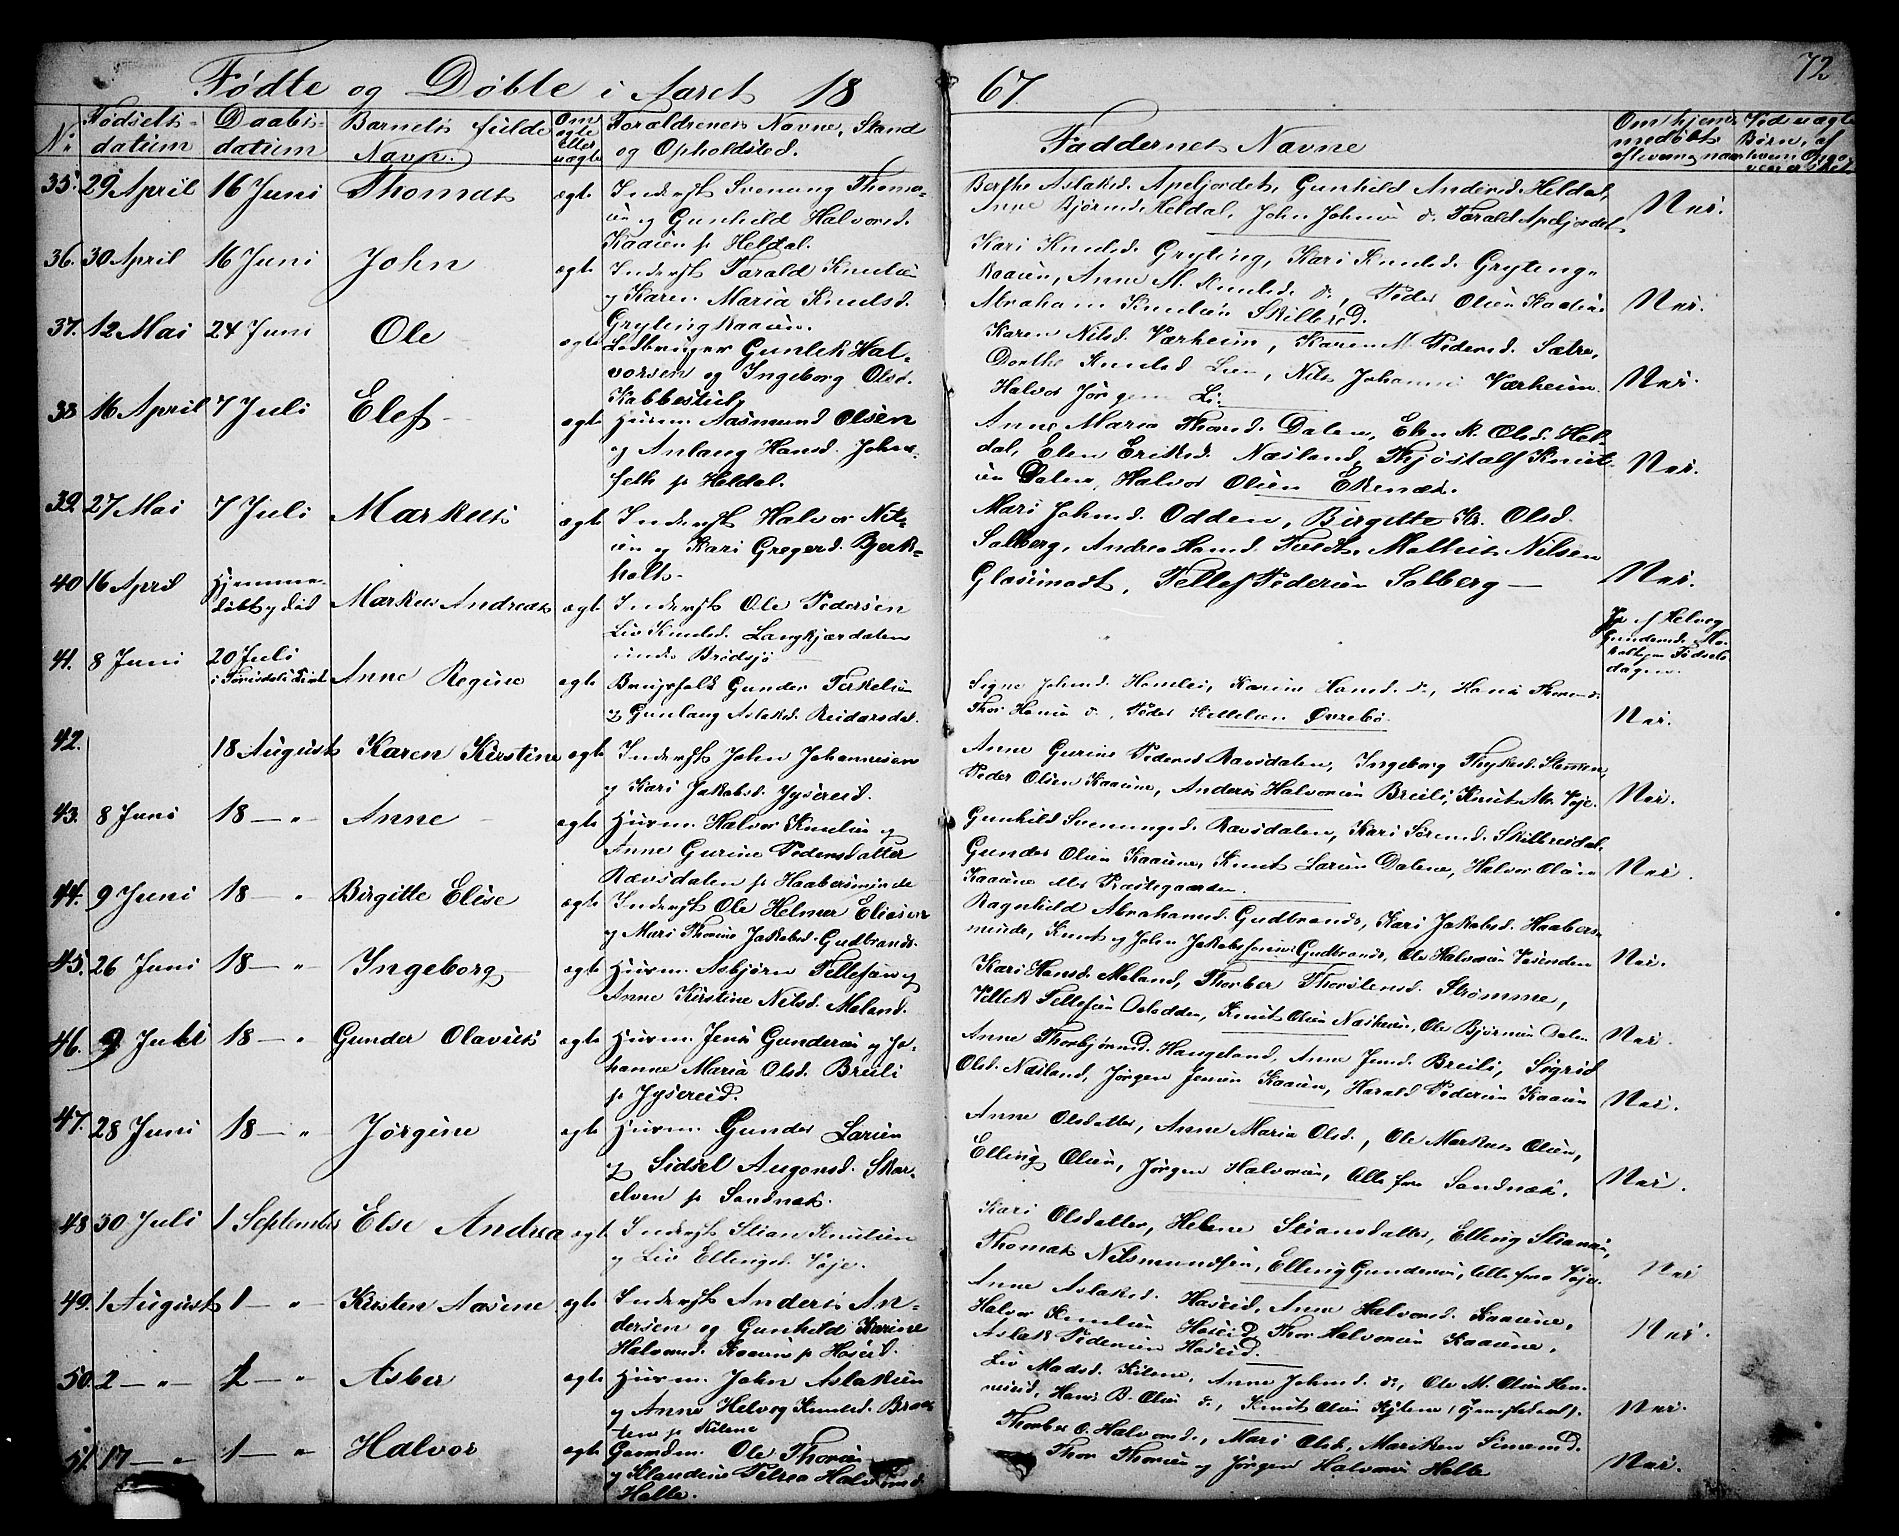 Fødte og Døbte i Aaret 18
67.
72
No
Fødsels-
datum
Daabs-
datum
Barnets fulde
Navn.
Om
ægte
eller
uægte
Forældrenes Navne, Stand
og Opholdsted.
Faddernes Navne
Om hjem-
medøbt
Ved uægte
Børn, af
35. 29 April 16 Juni Thomas ægte Inderst Svenung Thoma-
og Gunhild Halvorsd.
Kaasen p. Heldal.
Berthe Aslaksd. Apeljordet, Gunhild Andersd. Heldal,
Anne Bjørnsd. Heldal, John Johnsen do. Tarald Apeljordet.
Nei.
36. 30 April 16 Juni John ægte Inderst Tarald Knudsen
og Karen Maria Knudsd.
Gryting kaasen.
Kari Knudsd. Gryting, Kari Knudsd. Gryting-
kaasen, Anne M. Knudsd. do, Peder Olsen Kaasen
Abraham Knudsen Skilbred.
Nei.
37. 12 Mai 24 Juni Ole ægte
Ledbruger Gunlek Hal-
vorsen og Ingeborg Olsd.
Kabbestul,
Karen Nilsd. Værheim, Karen M. Pedersd. Sætre,
Dorthe Knudsd Lien, Nils Johannes Værheim.
Halvor Jørgen Li.
Nei.
38 16 April 7 Juli Elef ægte Husm. Aasmund Olsen
og Anlaug Hansd. Johns-
p. Heldal.
Anne Maria Thorsd. Dalen, Elen K. Olsd. Hel-
dal, Elen Eriksd. Næsland, Thjøstolf Knut-
sen Dalen, Halvor Olsen Ekenæs.
Nei.
39. 27 Mai 7 Juli Markus ægte Inderst Halvor Nil-
sen og Kari Gregersd. Bjerk-
holt.
Mari Johnsd. Odden, Birgitte K. Olsd.
Solberg, Andrea Hansd. Mathias Nilsen
Glasimodt, Tellef Pedersen Solberg —
Nei.
40 16 April Hjemme-
døbt og død Markus Andreas ægte Inderst Ole Pedersen
Liv Knudsd. Langkjærdalen
under Bredsjø
Jo af Helvig
Gundersd.
Fødsels-
dagen.
41. 8 Juni 20 Juli
Anne Regine ægte Brugsfolk Gunder Terkelsen
og Gunlaug Aslaksd. Reidarsdal.
Signe Johnsd. Homlei, Karine Hansd. do, Hans Thorsen do
Thor Hansen do, Peder Kittelsen Øvrebø.
Nei.
42. 18 August Karen Kirstine ægte Inderst John Johannesen
og Kari Jakobsd. Jysereid.
Anne Gurine Pedersd Ravsdalen, Ingeborg Thykesd.
Peder Olsen Kaasene, Anders Halvorsen Breili, Knut M. Voje.
Nei.
43. 8 Juni 18 — " Anne ægte Husm. Halvor Knudsen og
Anne Gurine Pedersdatter
Ravsdalen p. Haabersminde
Gunhild Svenungsd. Ravsdalen, Kari Sørensd. Skilbreidal.
Gunder Olsen Kaasene, Knut Larsen Dalene, Halvor Olsen
Kaasene eller Præstegaarden.
Nei.
44. 9 Juni 18 — " Birgitte Elise ægte Inderst Ole Helmer Eliasen
og Mari Thorine Jakobsd. Gudbrands.
Ragnhild Abrahamsd. Gudbrands, Kari Jakobsd. Haabers-
minde, Knut og John Jakobsen Gudbrands, Ole Halvorsen
Nei.
45. 26 Juni 18 — " Ingeborg ægte Husm. Asbjørn Tellefsen og
Anne Kirstine Nilsd. Meland.
Kari Hansd. Meland, Thorber Thorstensd. Strømme,
Tellef Tellefsen Osledden, Knut Olsen Næsheim, Ole Bjørnsen Dalen
Nei.
46. 9 Juli 18 — " Gunder Olavus ægte Husm. Jens Gundersen og Jo-
hanne Maria Olsd. Breili
p. Jysereid.
Anne Thorbjørnsd. Haugeland, Anne Jensd. Breili, Sigrid
Olsd. Næsland, Jørgen Jensen Kaasen, Harald Pedersen Kaasen
Nei.
47. 28 Juni 18 — " Jørgine ægte Husm. Gunder Larsen
og Sidsel Augonsd. Skar-
elven p. Sandnæs.
Anne Olsdatter, Anne Maria Olsd., Ole Markus Olsen,
Elling Olsen, Jørgen Halvorsen, Alle fra Sandnæs.
Nei.
48 30 Juli 1 September Else Andrea ægte Inderst Stian Knudsen
og Liv Ellingsd. Voje.
Kari Olsdatter, Helene Stiansdatter, Elling Stiansen,
Thomas Nilsmundsen, Elling Gundersen, Alle fra Voje.
Nei
49. 1 August 1 — " Kirsten Aasine ægte Inderst Anders An-
dersen og Gunhild Karine
Halvorsd. Kaasen p. Hoseid.
Anne Aslaksd. Hoseid, Anne Halvorsd. Kaasene,
Halvor Knudsen Hoseid, Thor Halvorsen Kaasene,
Aslak Pedersen Hoseid.
Nei.
50. 2 — " 1 — " Asber ægte Husm. John Aslaksen
og Anne Helvig Knudsd. Braa-
ten p. Kilene
Liv Madsd. Kilene, Anne Johnsd. do, Ole M. Olsen Hen-
neseid, Hans B. Olsen do, Knut Olsen Kilene,
Nei.
51. 17 — " 1 — " Halvor ægte Gaardm. Ole Thorsen
og Klaudine Petrea Halvorsd.
Helle.
Thorber O. Halvorsd., Mari Olsd., Mariken Simonsd.
Thor Thorsen og Jørgen Halvorsen Helle
Nei.